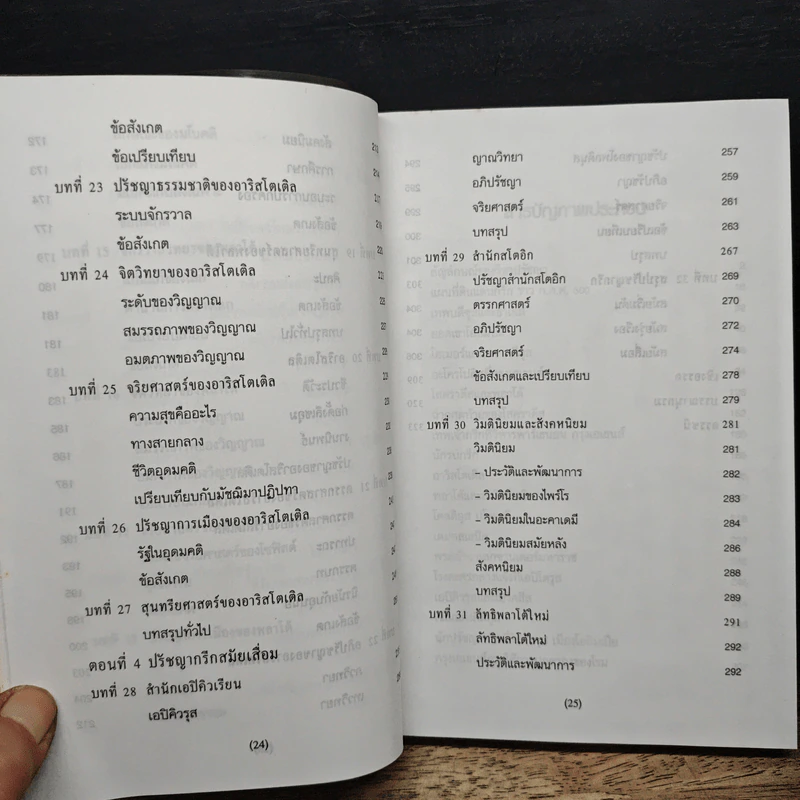 ข้อสังเกต
ข้อเปรียบเทียบ
บทที่ 23 ปรัชญาธรรมชาติของอาริสโตเติล
ระบบจักรวาล
ข้อสังเกต
บทที่ 24 จิตวิทยาของอาริสโตเติล
ระดับของวิญญาณ
สมรรถภาพของวิญญาณ
อมตภาพของวิญญาณ
บทที่ 25 จริยศาสตร์ของอาริสโตเติล
ความสุขคืออะไร
ทางสายกลาง
ชีวิตอุดมคติ
เปรียบเทียบกับมัชฌิมาปฏิปทา
บทที่ 26 ปรัชญาการเมืองของอาริสโตเติล
รัฐในอุดมคติ
ข้อสังเกต
บทที่ 27 สุนทรียศาสตร์ของอาริสโตเติล
บทสรุปทั่วไป
ตอนที่ 4 ปรัชญากรีกสมัยเสื่อม
บทที่ 28 สำนักเอปิคิวเรียน
เอปิคิวรุส
(24)
ญาณวิทยา 257
อภิปรัชญา 259
จริยศาสตร์ 261
บทสรุป 263
บทที่ 29 สำนักสโตอิก 267
ปรัชญาสำนักสโตอิก 269
ตรรกศาสตร์ 270
อภิปรัชญา 272
จริยศาสตร์ 274
ข้อสังเกตและเปรียบเทียบ 278
บทสรุป 279
บทที่ 30 วิมตินิยมและสังคหนิยม 281
วิมตินิยม 281
– ประวัติและพัฒนาการ 282
– วิมตินิยมของไพร์โร 283
– วิมตินิยมในอะคาเดมี 284
– วิมตินิยมสมัยหลัง 286
สังคหนิยม 288
บทสรุป 289
บทที่ 31 ลัทธิพลาโต้ใหม่ 291
ลัทธิพลาโต้ใหม่ 292
ประวัติและพัฒนาการ 292
(25)